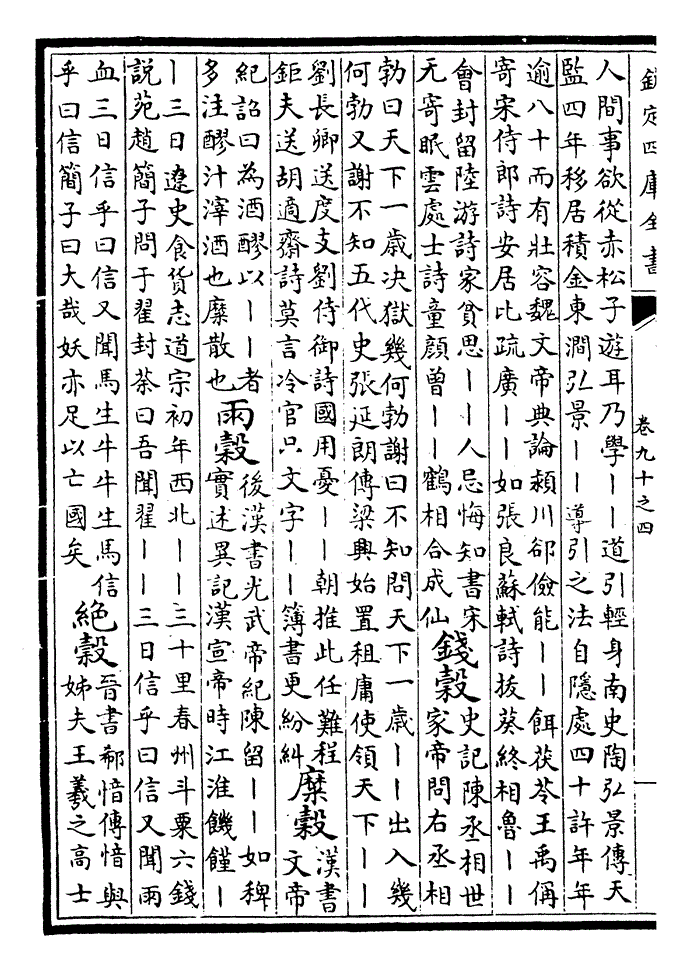 欽定四庫全書
卷九十之四
人間事欲從赤松子遊耳乃學丨丨道引輕身南史陶弘景傳天
監四年移居積金東澗弘景丨丨導引之法自隱處四十許年年
逾八十而有壯容魏文帝典論潁川郤儉能丨丨餌茯苓王禹偁
寄宋侍郎詩安居比疏廣丨丨如張良蘇軾詩拔葵終相魯丨丨
會封留陸游詩家貧思丨丨人忌悔知書宋
无寄眠雲處士詩童顔曽丨丨鶴相合成仙
錢穀
史記陳丞相世
家帝問右丞相
勃曰天下一歲決獄幾何勃謝曰不知問天下一歲丨丨出入幾
何勃又謝不知五代史張延朗傳梁興始置租庸使領天下丨丨
劉長卿送度支劉侍御詩國用憂丨丨朝推此任難程
鉅夫送胡適齋詩莫言冷官只文字丨丨簿書更紛糾
糜穀
漢書
文帝
紀詔曰為酒醪以丨丨者
多注醪汁滓酒也糜散也
雨穀
後漢書光武帝紀陳留丨丨如稗
實述異記漢宣帝時江淮饑饉丨
丨三日遼史食貨志道宗初年西北丨丨三十里春州斗粟六錢
說苑趙簡子問于翟封荼曰吾聞翟丨丨三日信乎曰信又聞雨
血三日信乎曰信又聞馬生牛牛生馬信
乎曰信簡子曰大哉妖亦足以亡國矣
絶穀
晉書郗愔傳愔與
姊夫王羲之高士